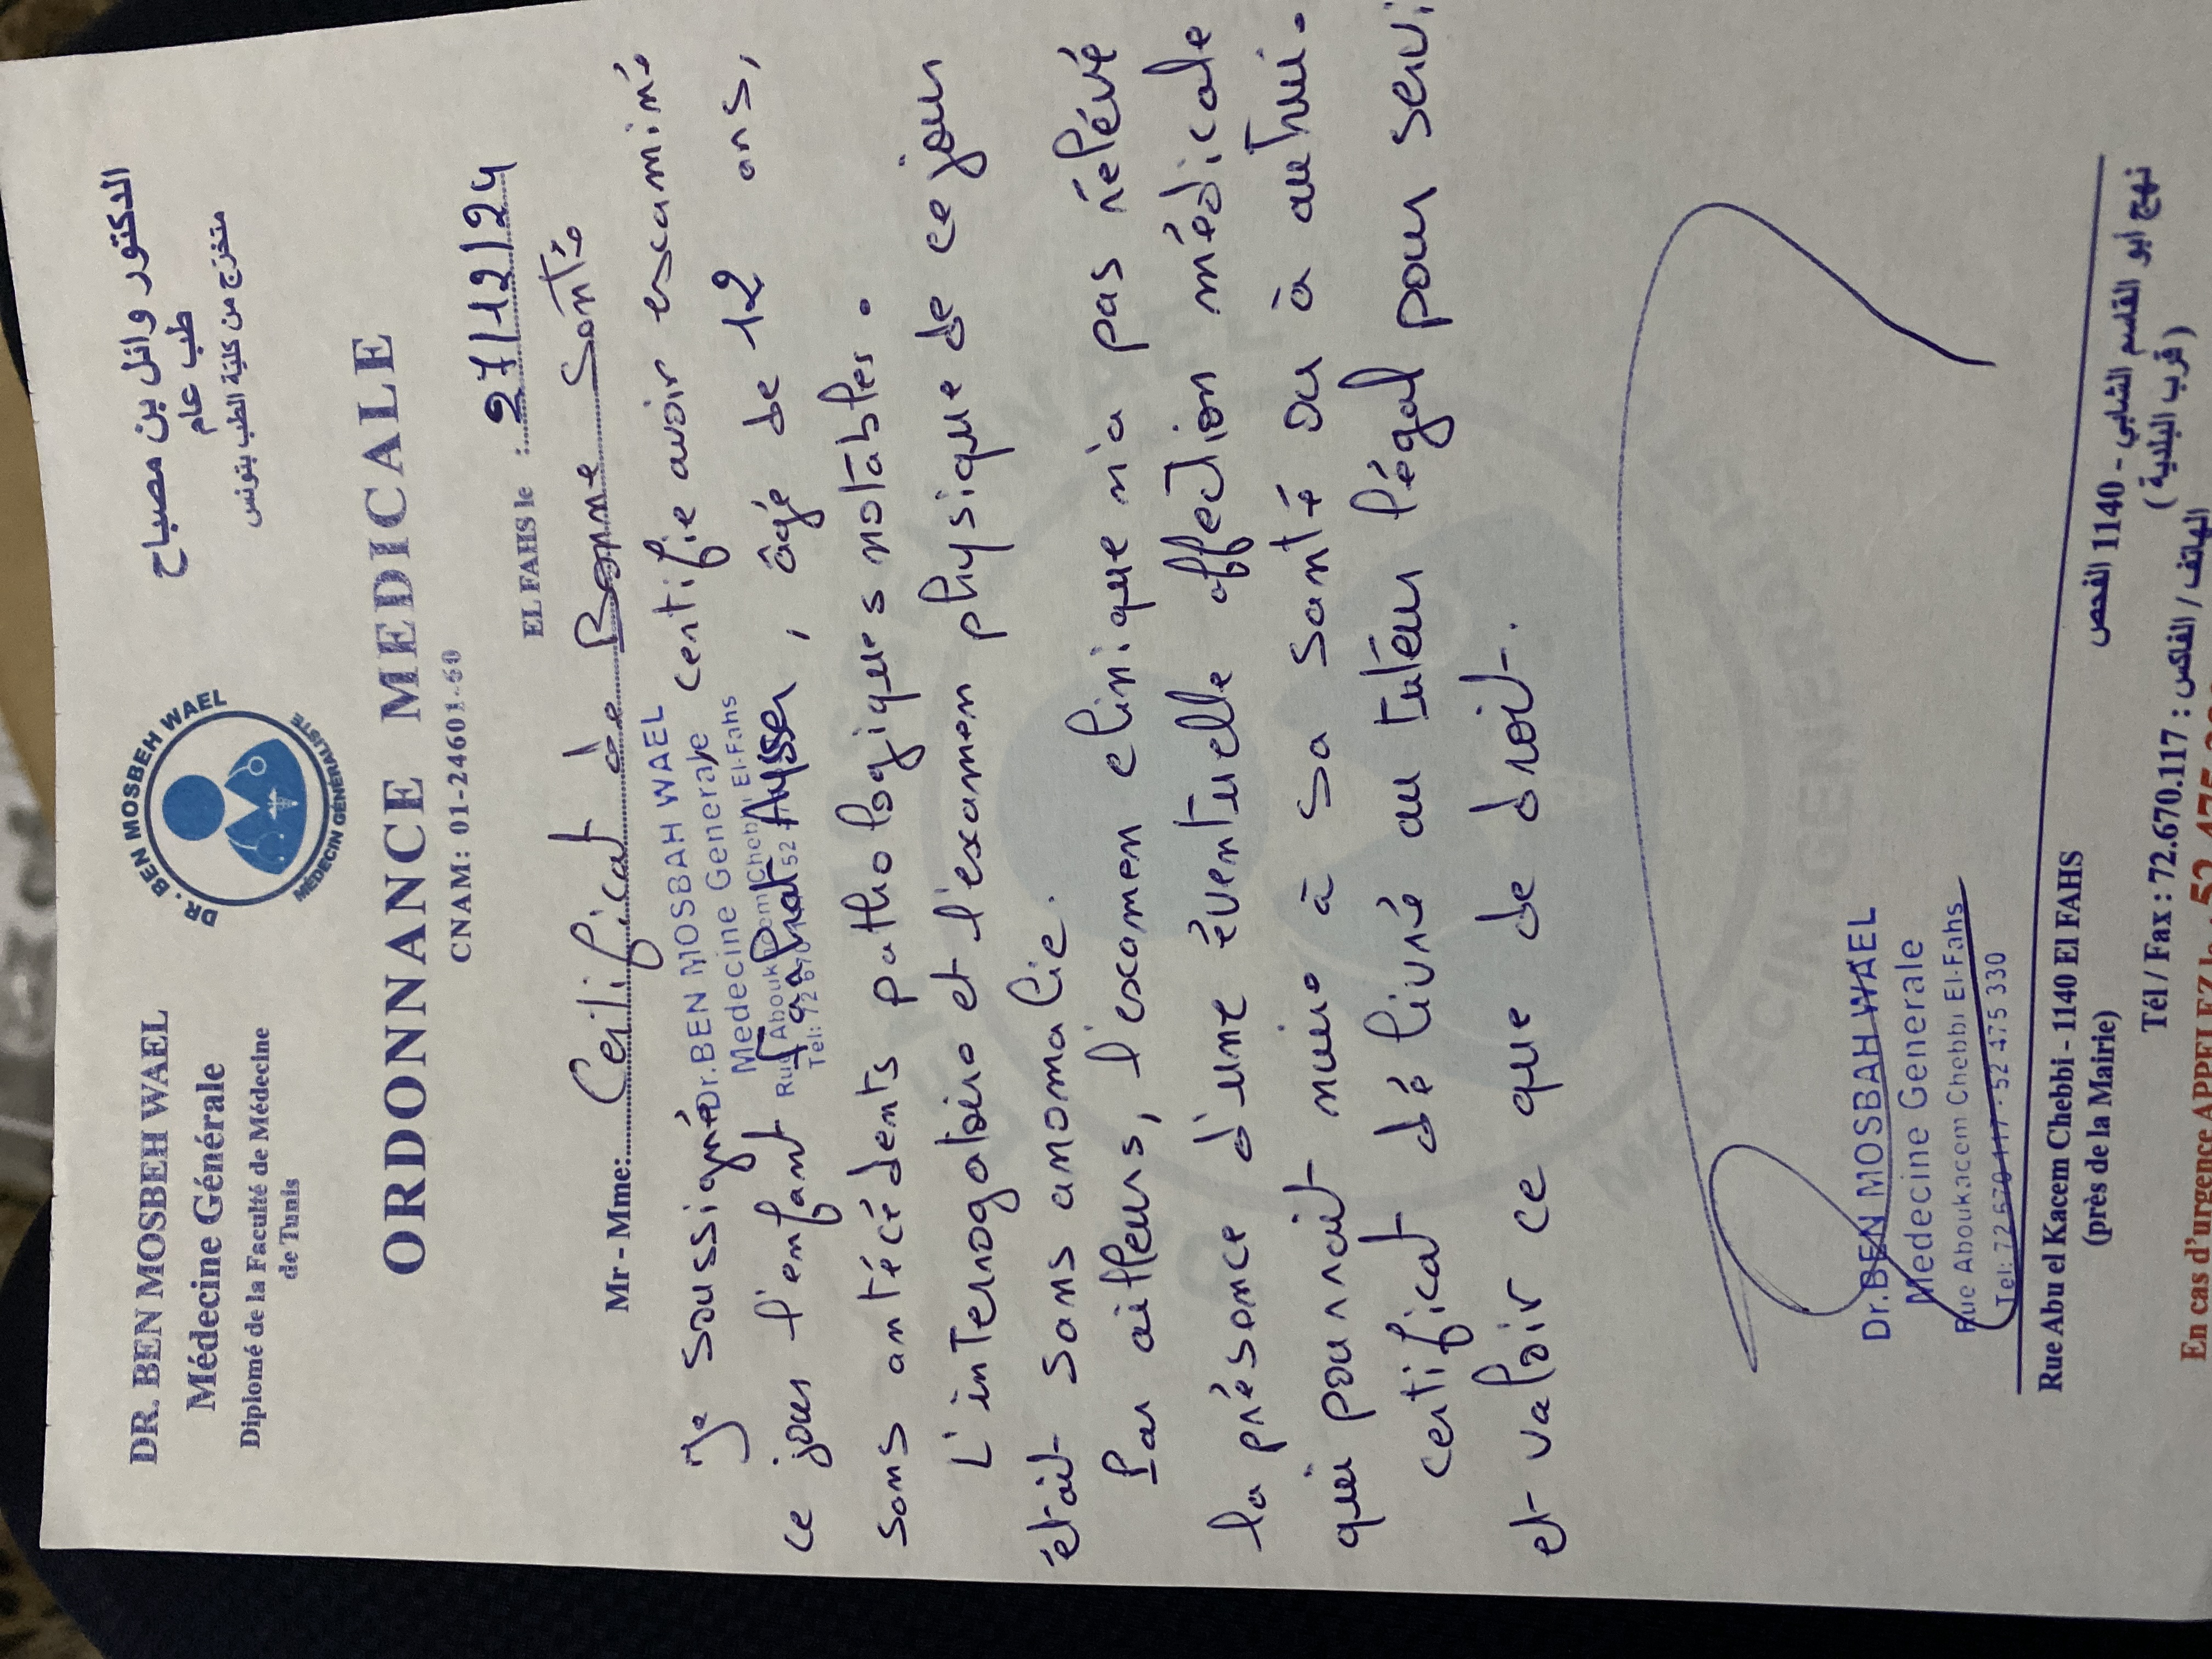 DR. BEN MOSBEH WAEL
Médecine Générale
Diplomé de la Faculté de Médecine
de Tunis
DR. BEN MOSBEH WAEL
MÉDECIN GÉNÉRALISTE
الدكتور وائل بن مصباح
طب عام
متخرّج من كلية الطب بتونس
ORDONNANCE MEDICALE
CNAM: 01-24601-60
EL FAHS le : 27/12/24
Mr - Mme: Certificat de Bonne Santé
Je soussigné Dr. BEN MOSBAH WAEL certifie avoir examiné
Medecine Generale
ce jour l'enfant Ayser, âgé de 12 ans,
sans antécédents pathologiques notables.
L'interrogatoire et l'examen physique de ce jour
était sans anomalie.
Par ailleurs, l'examen clinique n'a pas rélévé
la présence d'une éventuelle affection médicale
qui pourrait nuire à sa santé ou à autrui.
certificat délivré au tuteur légal pour servir
et valoir ce que de droit.
Dr. BEN MOSBAH WAEL
Medecine Generale
Rue Aboukacem Chebbi El-Fahs
Tel: 72 670 117 - 52 475 330
Rue Abu el Kacem Chebbi - 1140 El FAHS
(près de la Mairie)
نهج أبو القاسم الشابي - 1140 الفحص
( قرب البلدية )
Tél / Fax : 72.670.117 : الهاتف / الفاكس
En cas d'urgence APPELEZ le